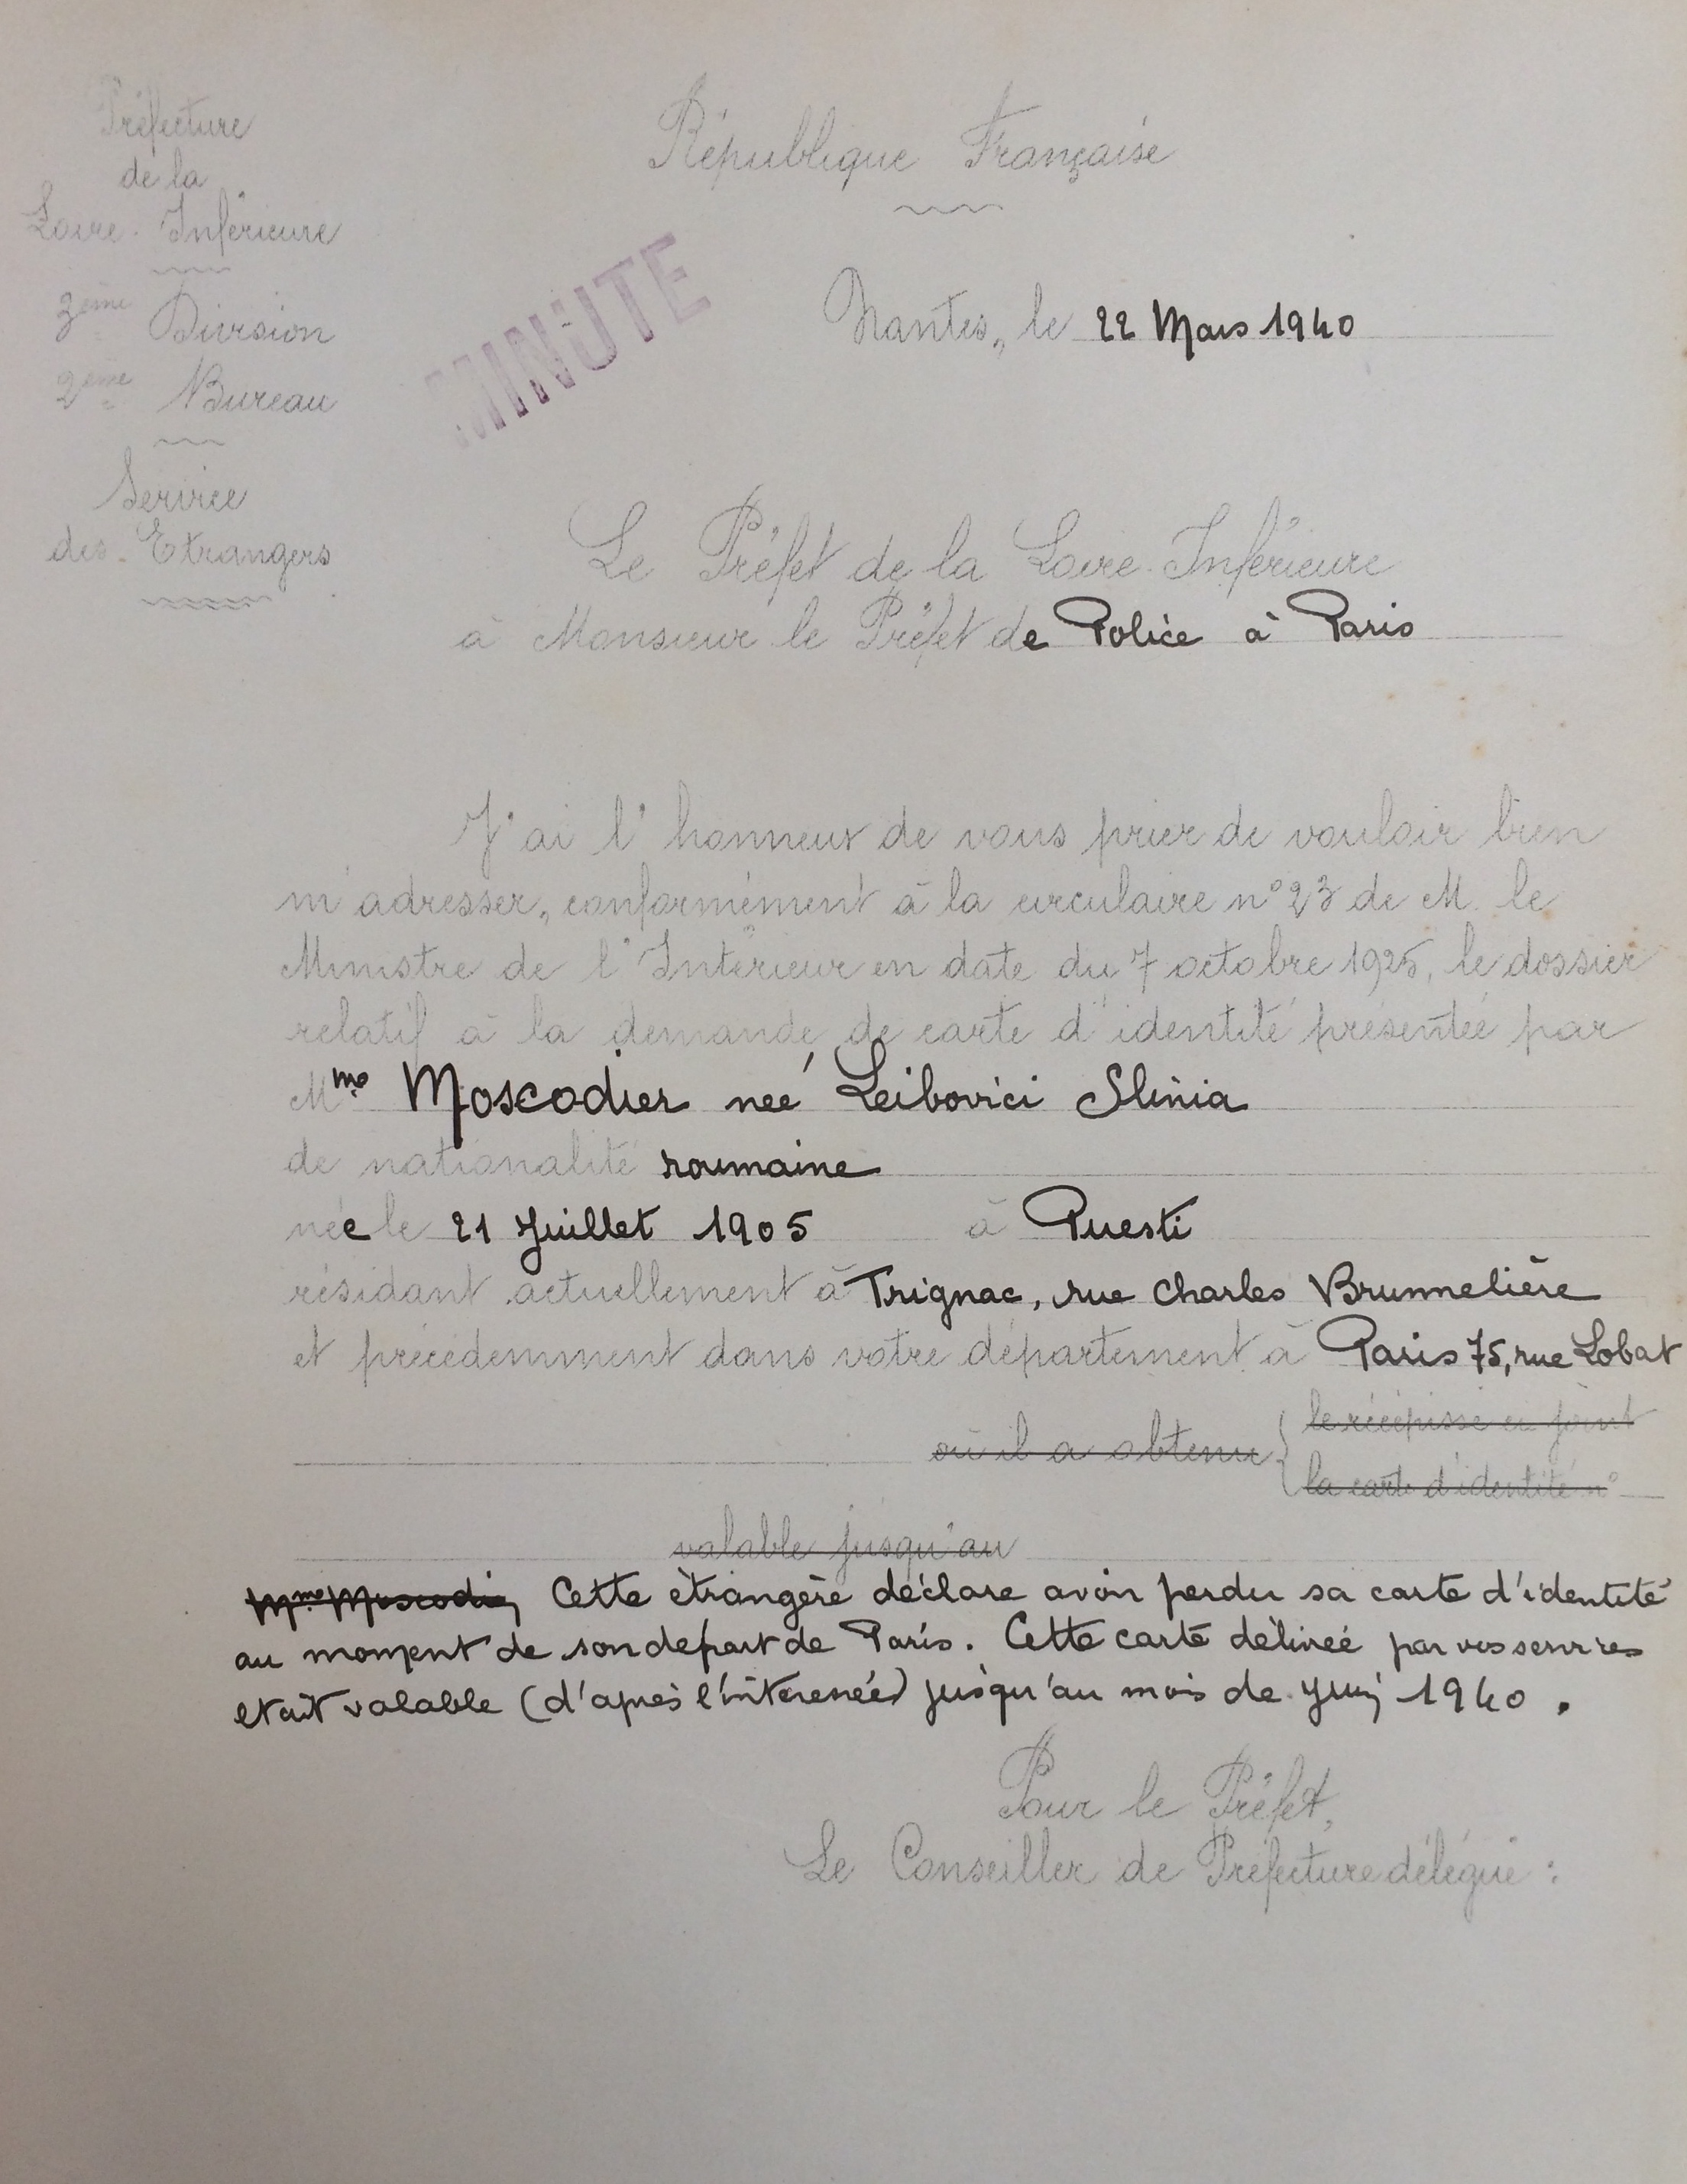 Préfecture
de la
Loire-Inférieure
3ème Division
2ème Bureau
Service
des Etrangers
République Française
MINUTE
Nantes, le 22 Mars 1940
Le Préfet de la Loire-Inférieure
à Monsieur le Préfet de Police à Paris
J'ai l'honneur de vous prier de vouloir bien
m'adresser, conformément à la circulaire n° 23 de M. le
Ministre de l'Intérieur en date du 7 octobre 1925, le dossier
relatif à la demande de carte d'identité présentée par
Mme Moscodier née Leibovici Slinia
de nationalité roumaine
née le 21 Juillet 1905 à Puesti
résidant actuellement à Trignac, rue Charles Brunnelière
et précédemment dans votre département à Paris 75, rue Lobat
où il a obtenu
le récépissé ci-joint
la carte d'identité n°
valable jusqu'au
Mme Moscodier Cette étrangère déclare avoir perdu sa carte d'identité
au moment de son départ de Paris. Cette carte délivrée par vos services
etait valable (d'après l'intéressée) jusqu'au mois de Juin 1940.
Pour le Préfet,
Le Conseiller de Préfecture délégué :